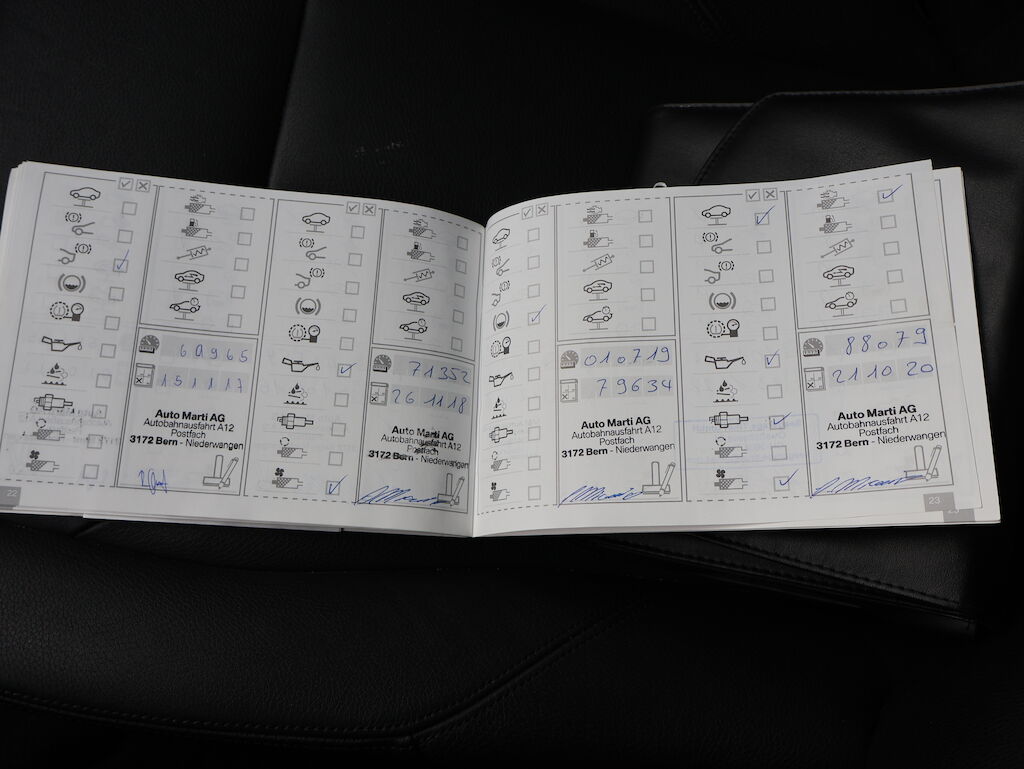 60965
151117
Auto Marti AG
Autobahnausfahrt A12
Postfach
3172 Bern - Niederwangen
22
71352
261118
Auto Marti AG
Autobahnausfahrt A12
Postfach
3172 Bern - Niederwangen
010719
79634
Auto Marti AG
Autobahnausfahrt A12
Postfach
3172 Bern - Niederwangen
88079
211020
Auto Marti AG
Autobahnausfahrt A12
Postfach
3172 Bern - Niederwangen
23